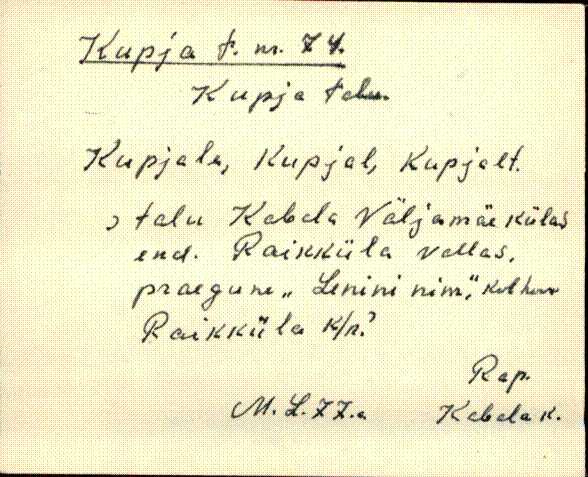 Kupja t. nr. 74.
Kupja talu.
Kupjale, Kupjal, Kupjalt.
, talu Kabala Väljamäe külas
end. Raikküla vallas,
praegune „Lenini nim." kolhoos
Raikküla k/n.
Rap.
M. L. 77.a Kabala k.